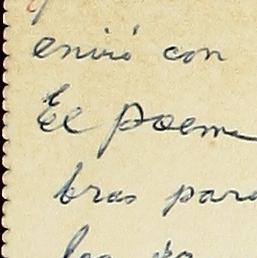 envió con
El poema
bras para